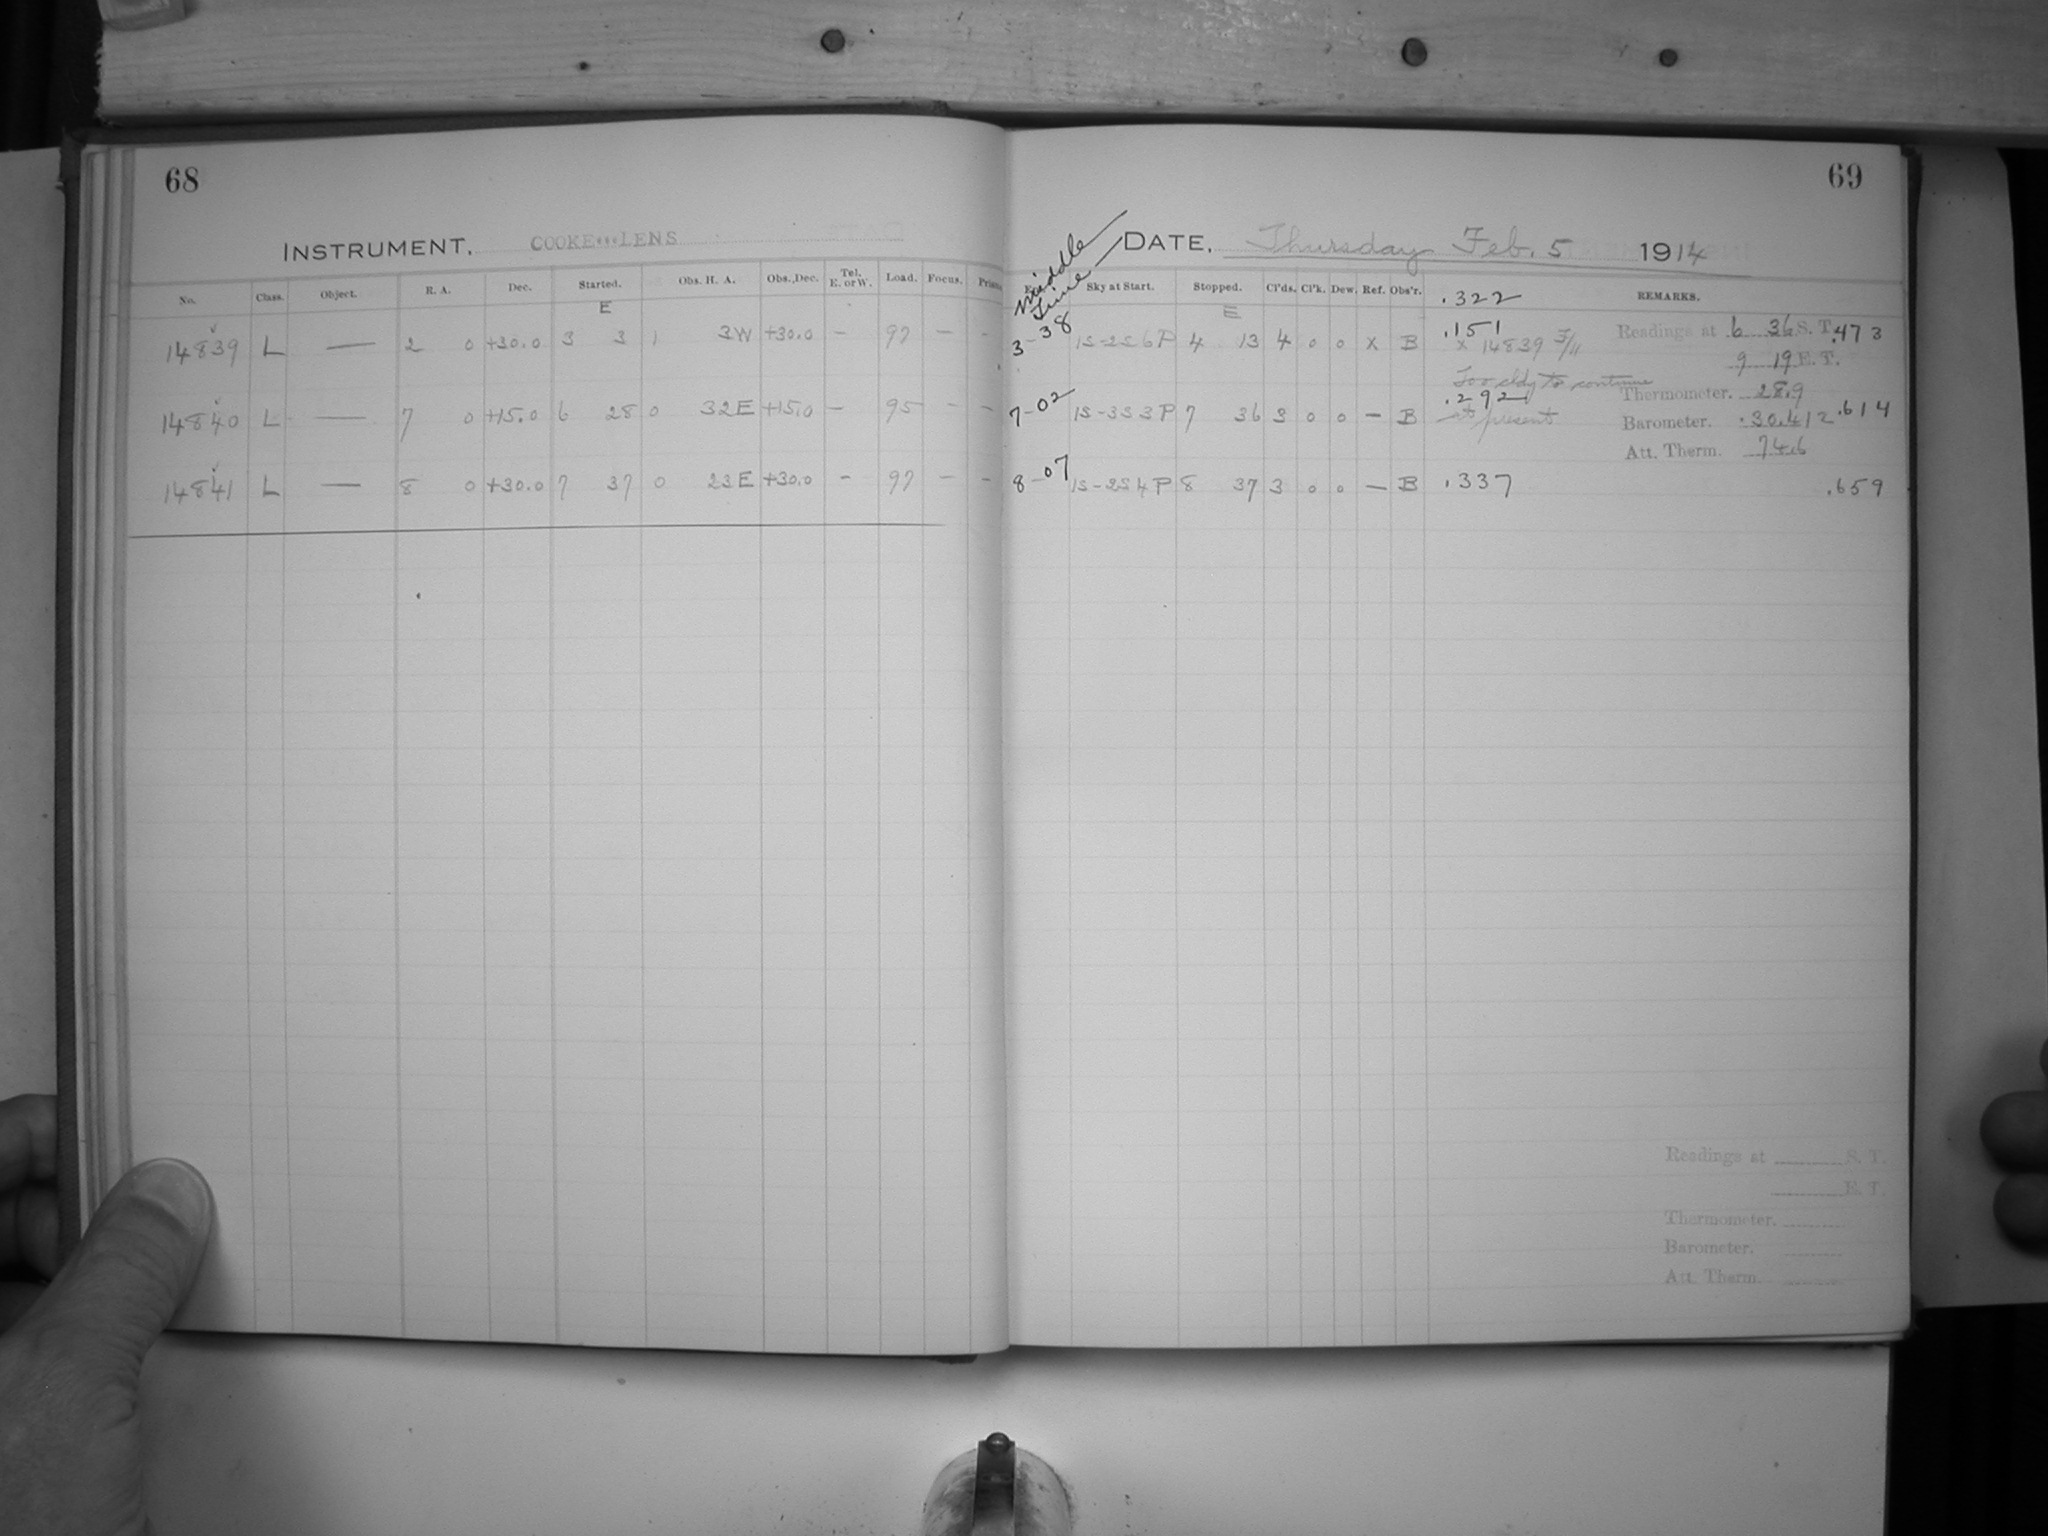 68
INSTRUMENT, COOKE LENS
No. Class. Object. R. A. Dec. Started. Obs. H. A. Obs. Dec. Tel. E. or W. Load. Focus. Prism
E
14839 L — 2 0 +30.0 3 3 1 3W +30.0 — 97 — —
14840 L — 7 0 +15.0 6 28 0 32E +15.0 — 95 — —
14841 L — 8 0 +30.0 7 37 0 23E +30.0 — 97 — —
69
Middle Time
DATE, Thursday Feb. 5 1914
Sky at Start. Stopped. Cl'ds. Cl'k. Dew. Ref. Obs'r. .322 REMARKS.
E
3-38 1S-2S6P 4 13 4 0 0 x B .151 x 14839 3/11 Readings at 6 36 S. T. .473
9 19 E. T.
Too cldy to continue
Thermometer. 28.9
7-02 1S-3S3P 7 36 3 0 0 — B .292 at present Barometer. 30.412 .614
Att. Therm. 74.6
8-07 1S-2S4P 8 37 3 0 0 — B .337 .659
Readings at S. T.
E. T.
Thermometer.
Barometer.
Att. Therm.